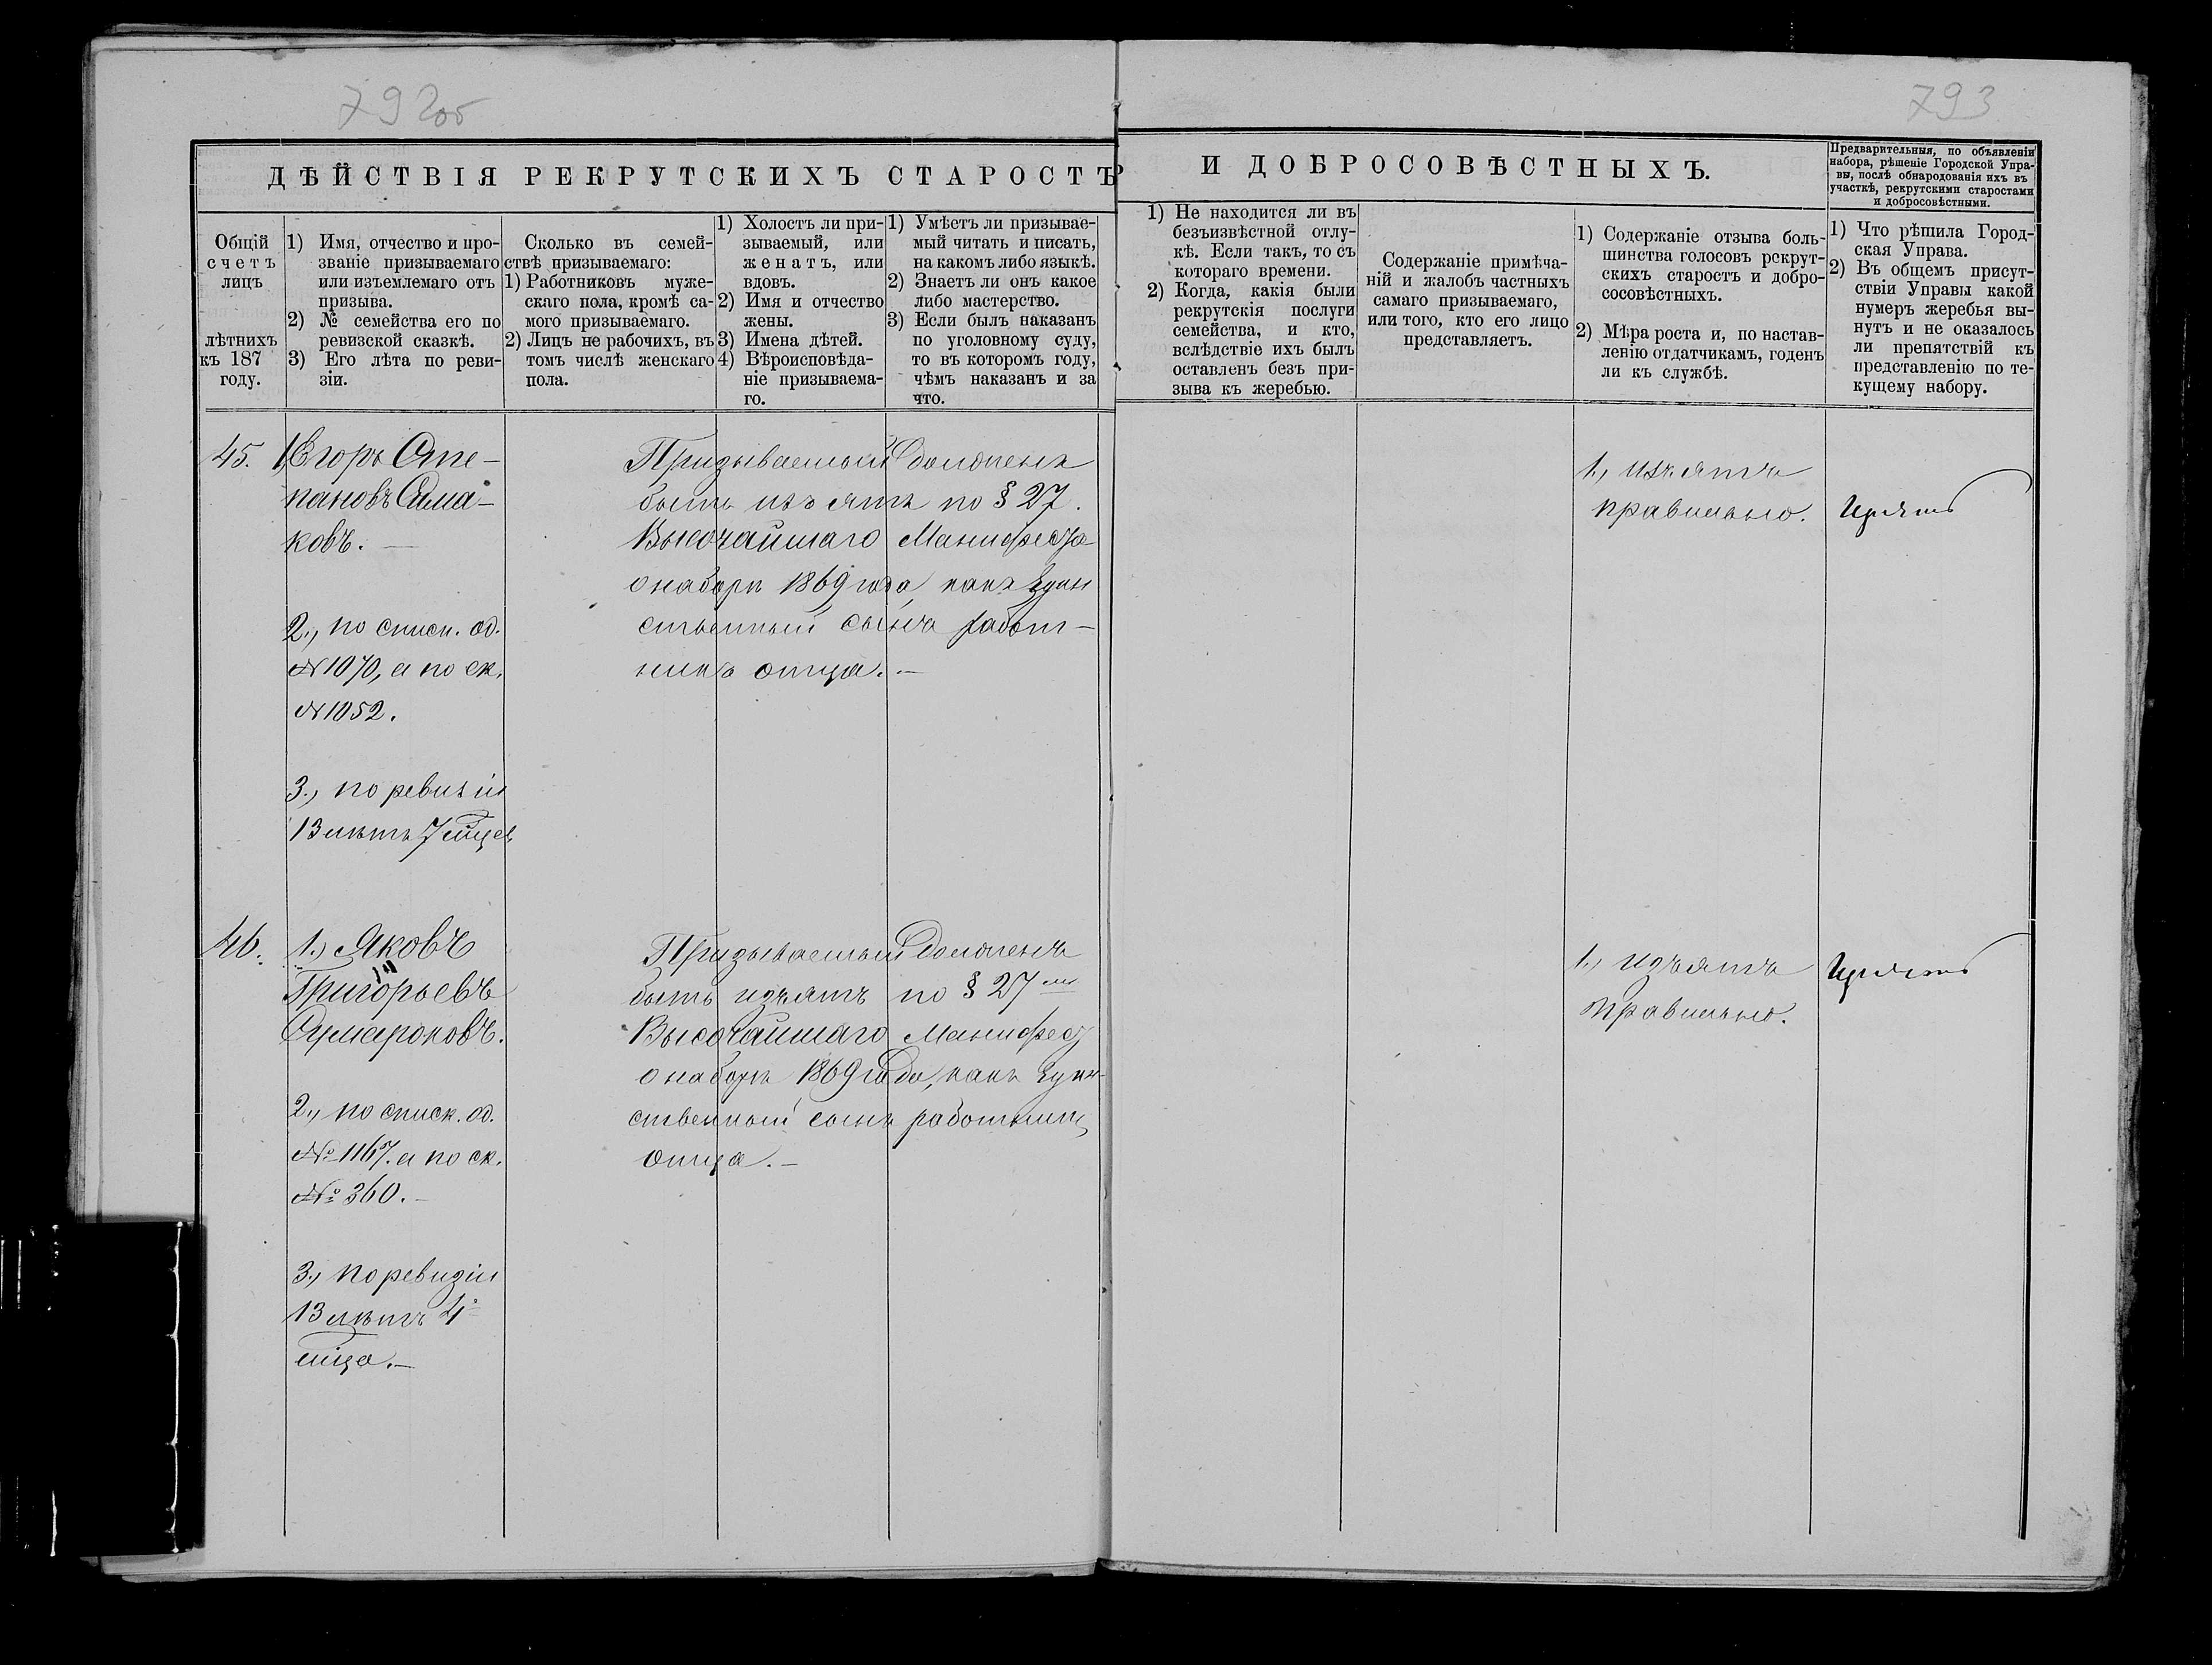 792об
793
ДѢЙСТВІЯ РЕКРУТСКИХЪ СТАРОСТЪ
И ДОБРОСОВѢСТНЫХЪ.
Предварительныя, по объявленіи
набора, рѣшеніе Городской Упра-
вы, послѣ обнародованія ихъ въ
участкѣ, рекрутскими старостами
и добросовѣстными.
Общій
счетъ
лицъ
лѣтнихъ
къ 187
году.
1) Имя, отчество и про-
званіе призываемаго
или изъемлемаго отъ
призыва.
2) № семейства его по
ревизской сказкѣ.
3) Его лѣта по реви-
зіи.
Сколько въ семей-
ствѣ призываемаго:
1) Работниковъ муже-
скаго пола, кромѣ са-
мого призываемаго.
2) Лицъ не рабочихъ, въ
томъ числѣ женскаго
пола.
1) Холостъ ли при-
зываемый, или
женатъ, или
вдовъ.
2) Имя и отчество
жены.
3) Имена дѣтей.
4) Вѣроисповѣда-
ніе призываема-
го.
1) Умѣетъ ли призывае-
мый читать и писать,
на какомъ либо языкѣ.
2) Знаетъ ли онъ какое
либо мастерство.
3) Если былъ наказанъ
по уголовному суду,
то въ которомъ году,
чѣмъ наказанъ и за
что.
1) Не находится ли въ
безъизвѣстной отлу-
кѣ. Если такъ, то съ
котораго времени.
2) Когда, какія были
рекрутскія послуги
семейства, и кто,
вслѣдствіе ихъ былъ
оставленъ безъ при-
зыва къ жеребью.
Содержаніе примѣча-
ній и жалобъ частныхъ
самаго призываемаго,
или того, кто его лицо
представляетъ.
1) Содержаніе отзыва боль-
шинства голосовъ рекрут-
скихъ старостъ и добро-
сосовѣстныхъ.
2) Мѣра роста и, по настав-
ленію отдатчикамъ, годенъ
ли къ службѣ.
1) Что рѣшила Город-
ская Управа.
2) Въ общемъ присут-
ствіи Управы какой
нумеръ жеребья вы-
нутъ и не оказалось
ли препятствій къ
представленію по те-
кущему набору.
45.
1, Егоръ Сте-
пановъ
ковъ. —
2., по списк. од.
№ 1070, а по ск.
№ 1052.
3., по ревизіи
13 лѣтъ 7 мѣцев
Призываемый долженъ
быть изъятъ по § 27.
Высочайшаго Манифеста
о наборѣ 1869 года, какъ един
ственный сынъ работ-
никъ отца. —
1., изъятъ
правильно.
Изъять
46.
1.) Яковъ
Григорьевъ
2., по списк. од.
№ 1167. а по ск.
№ 360. —
3., по ревизіи
13 лѣтъ 4
мѣца. —
Призываемый долженъ
быть изъятъ по § 27
Высочайшаго Манифес
о наборѣ 1869 года, какъ един-
ственный сынъ работникъ
отца. —
1., изъятъ
правильно.
Изъять